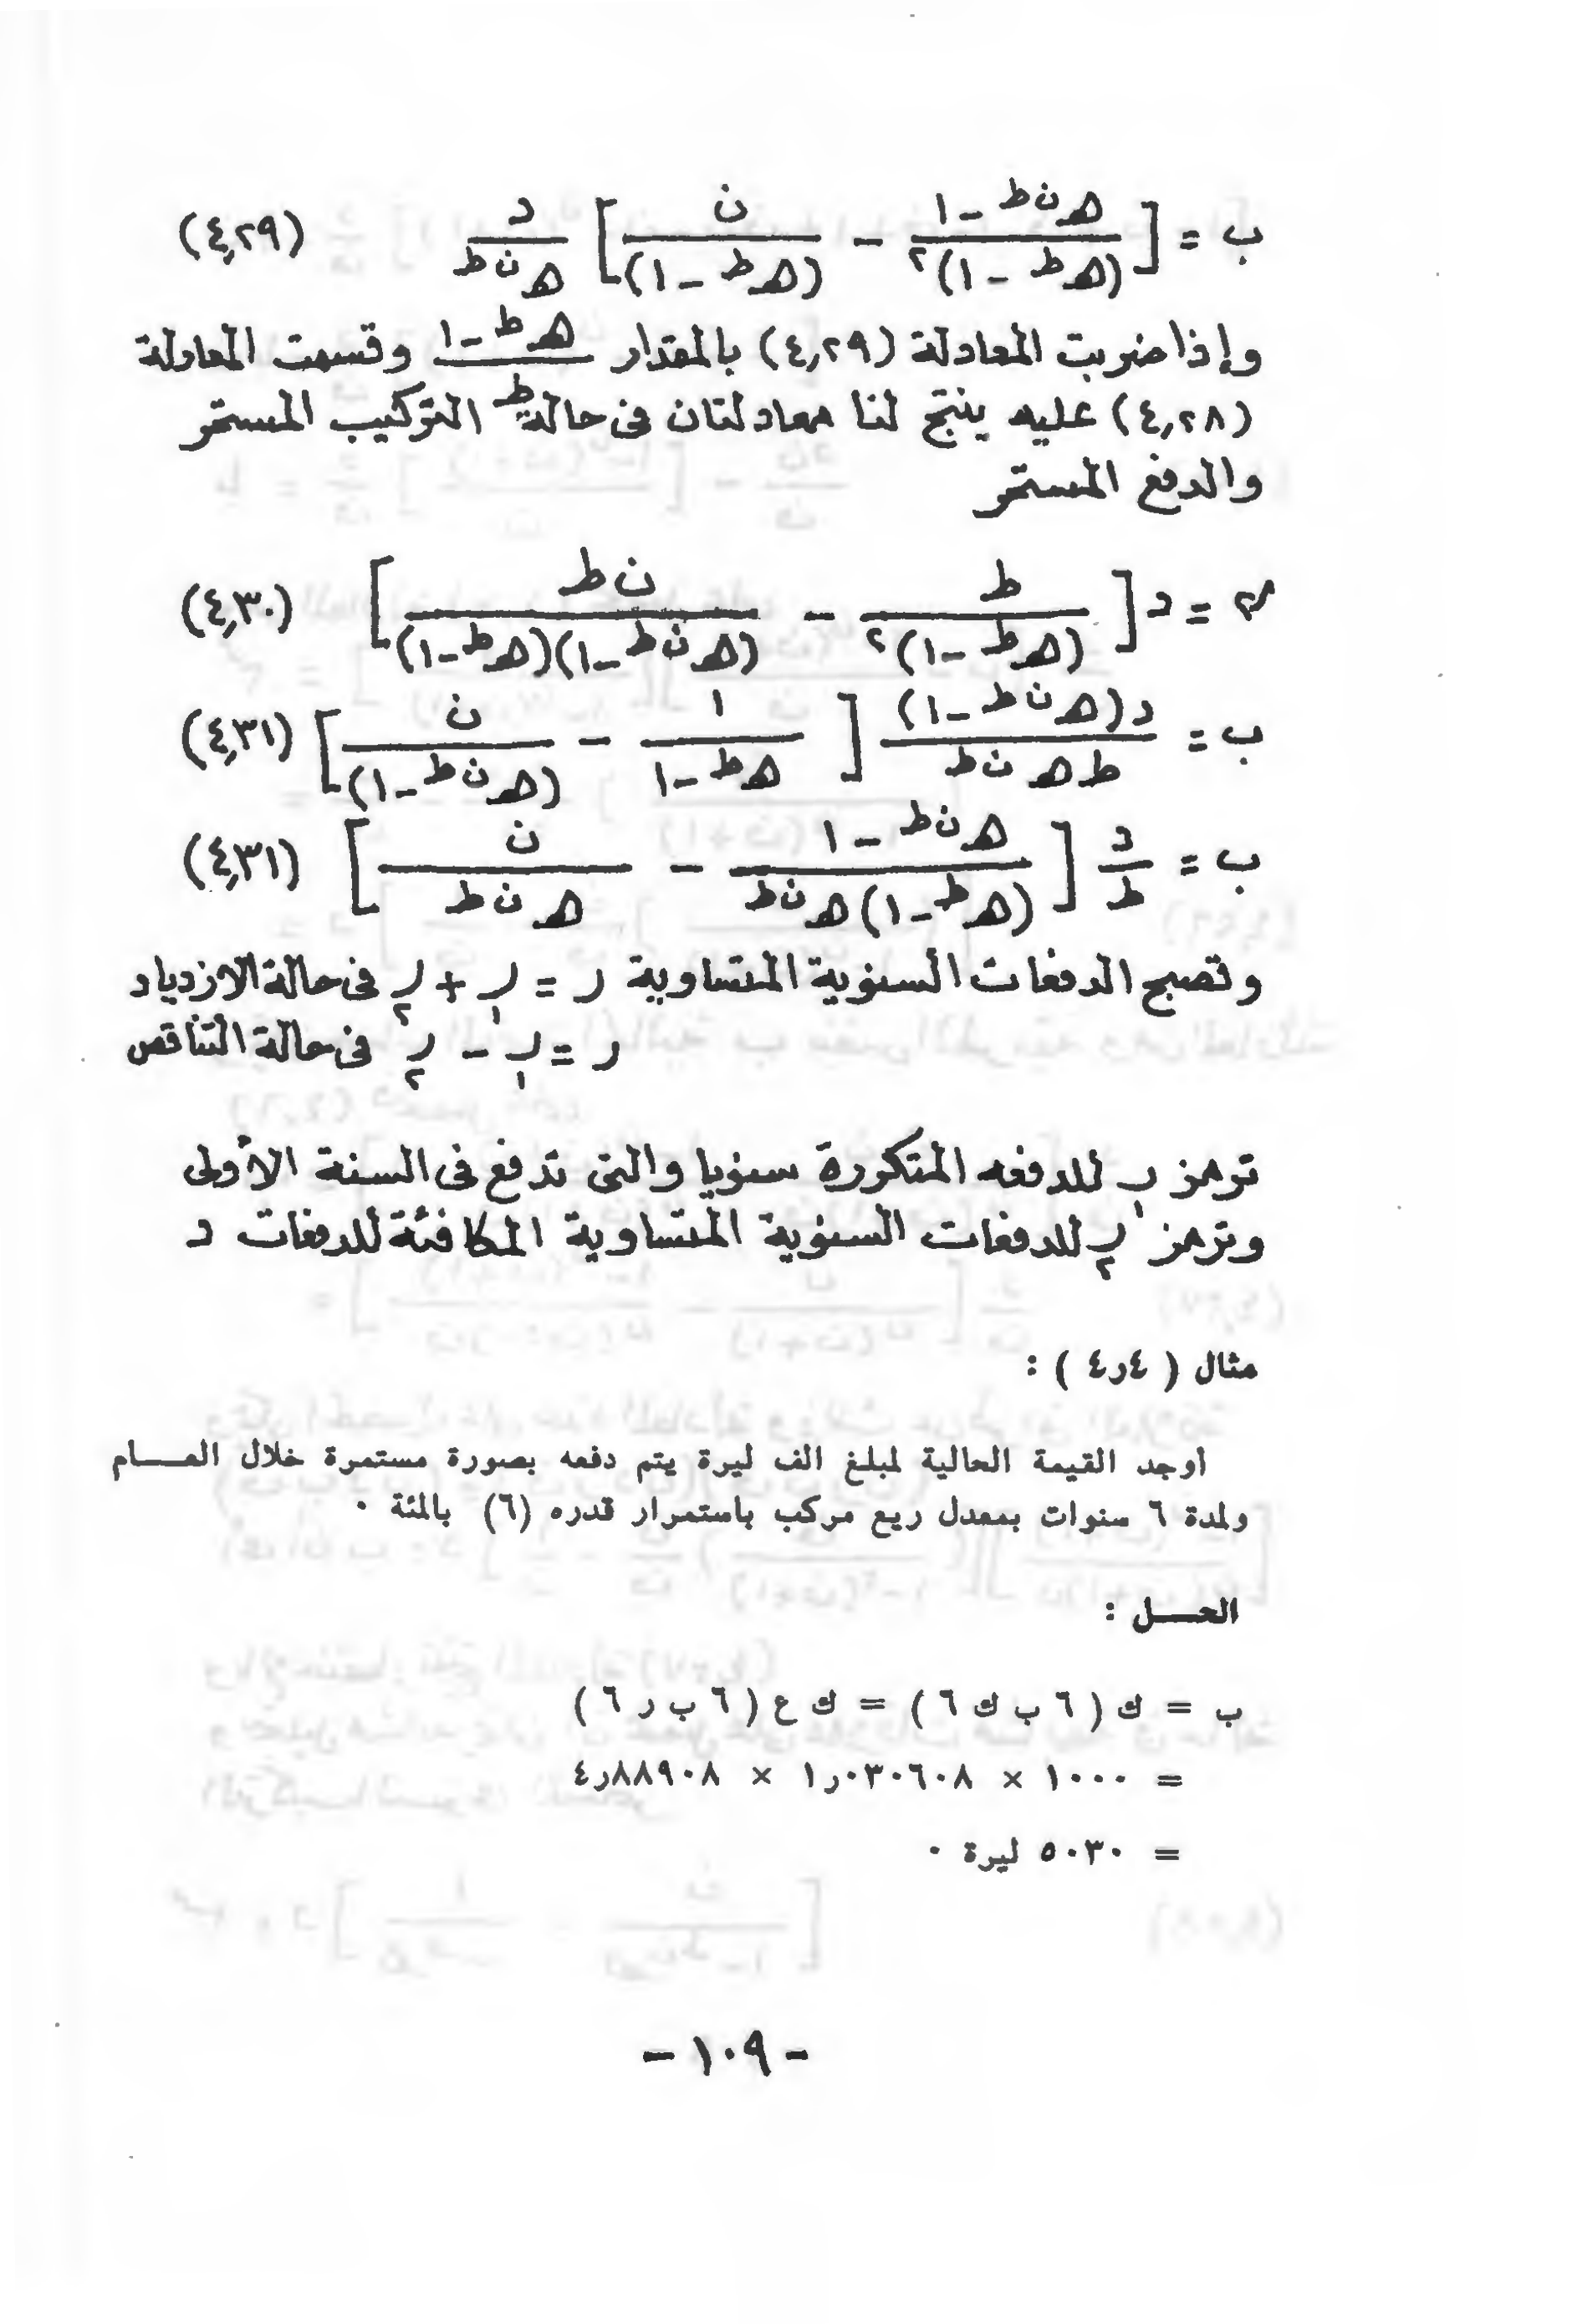 ب = [ (هـ^ن ط - ١) / (هـ^ط - ١)^٢ - ن / (هـ^ط - ١) ] د / هـ^ن ط (٤,٢٩)
وإذا ضربت المعادلة (٤,٢٩) بالمقدار (هـ^ط - ١) / ط وقسمت المعادلة
(٤,٢٨) عليه ينتج لنا معادلتان فى حالة التركيب المستمر
والدفع المستمر
= د [ ط / (هـ^ط - ١)^٢ - ن ط / (هـ^ن ط - ١)(هـ^ط - ١) ] (٤,٣٠)
ب = د (هـ^ن ط - ١) / ط هـ^ن ط [ ١ / هـ^ط - ١ - ن / (هـ^ن ط - ١) ] (٤,٣١)
ب = د / ط [ هـ^ن ط - ١ / (هـ^ط - ١) هـ^ن ط - ن / هـ^ن ط ] (٤,٣١)
وتصبح الدفعات السنوية المتساوية ر = ر١ + ر٢ فى حالة الازدياد
ر = ر١ - ر٢ فى حالة التناقص
ترمز ر١ للدفعه المتكررة سنويا والتى تدفع فى السنة الأولى
وترمز ر٢ للدفعات السنوية المتساوية المكافئة للدفعات د
مثال ( ٤ر٤ ) :
أوجد القيمة الحالية لمبلغ الف ليرة يتم دفعه بصورة مستمرة خلال العـــام
ولمدة ٦ سنوات بمعدل ريع مركب باستمرار قدره (٦) بالمئة ٠
الحــــل :
ب = ك ( ٦ ب ك ٦ ) = ك ع ( ٦ ب ر ٦ )
= ١٠٠٠ × ١ر٠٣٠٦٠٨ × ٤ر٨٨٩٠٨
= ٥٠٣٠ ليرة ٠
- ١٠٩ -